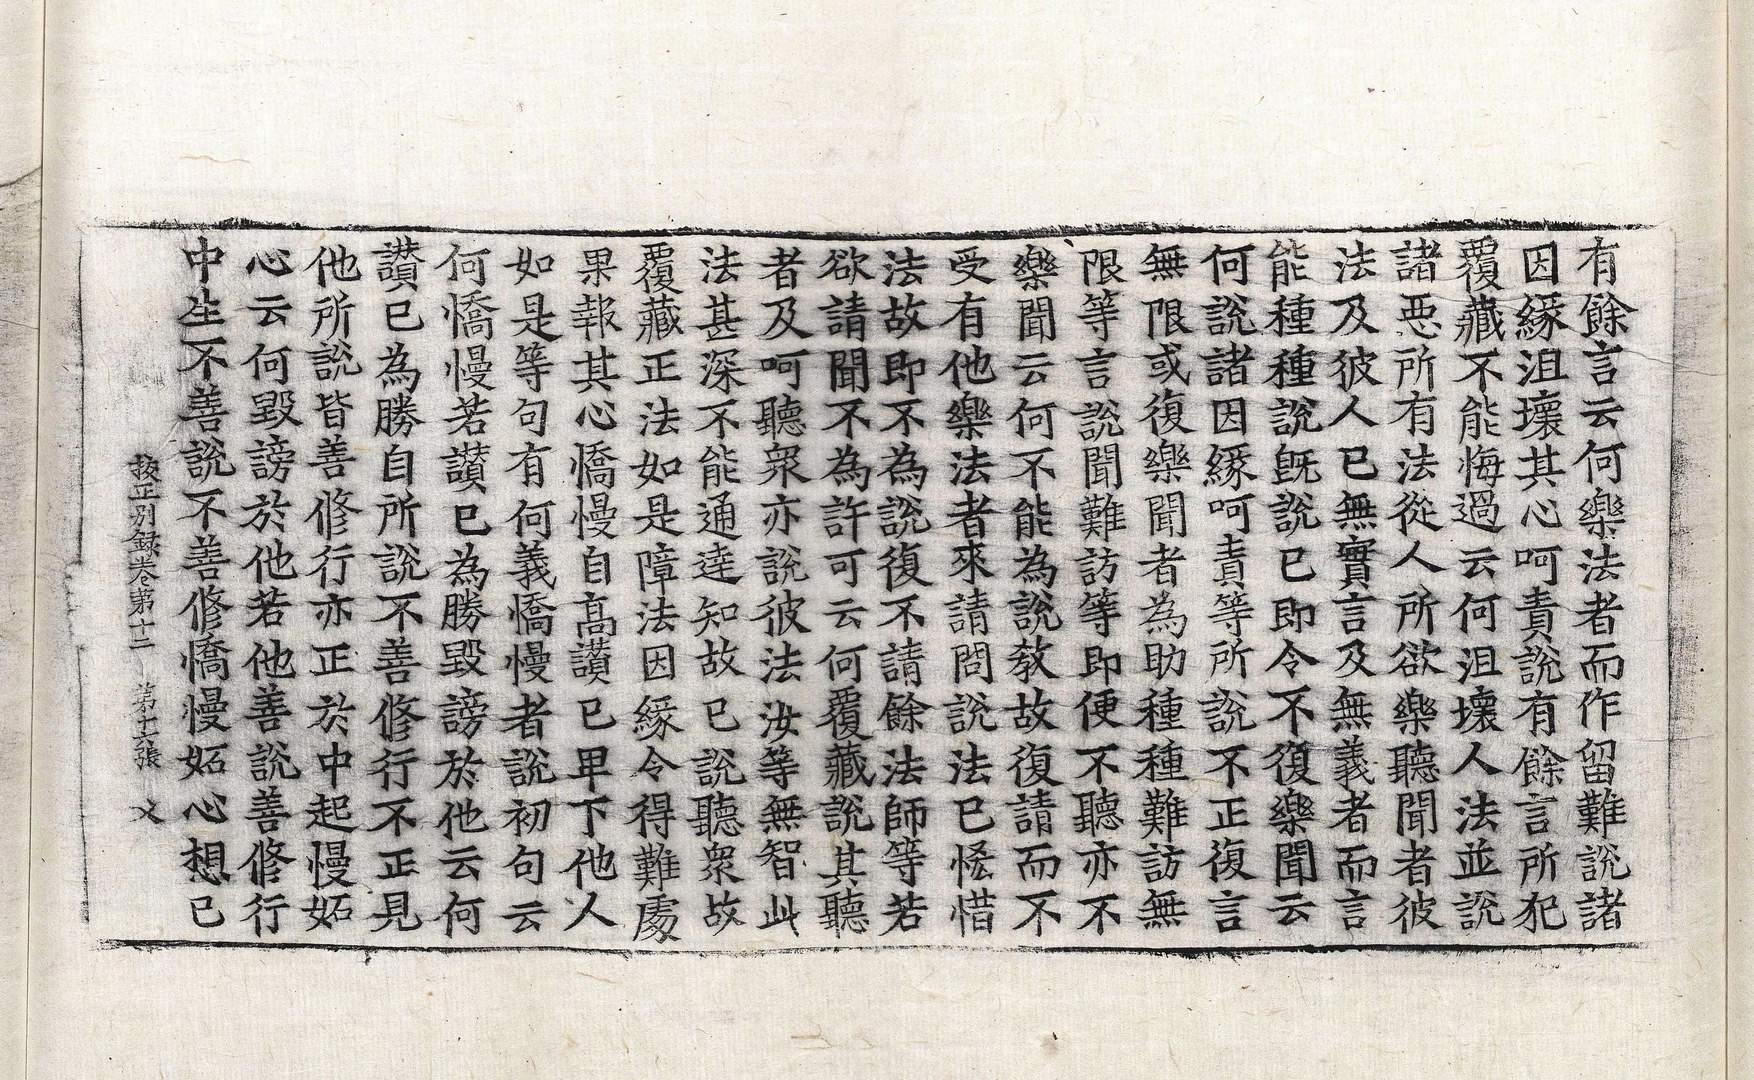 有餘言云何樂法者而作留難說諸
因緣沮壞其心呵責說有餘言所犯
覆藏不能悔過云何沮壞人法並說
諸惡所有法從人所欲樂聽聞者彼
法及彼人已無實言及無義者而言
能種種說旣說已即令不復樂聞云
何說諸因緣呵責等所說不正復言
無限或復樂聞者為助種種難訪無
限等言說聞難訪等即便不聽亦不
樂聞云何不能為說教故復請而不
受有他樂法者來請問說法已恡惜
法故即不為說復不請餘法師等若
欲請聞不為許可云何覆藏說其聽
者及呵聽衆亦說彼法汝等無智此
法甚深不能通達知故已說聽衆故
覆藏正法如是障法因緣令得難處
果報其心憍慢自高讚已卑下他人
如是等句有何義憍慢者說初句云
何憍慢若讚已為勝毀謗於他云何
讚已為勝自所說不善修行不正見
他所說皆善修行亦正於中起慢妬
心云何毀謗於他若他善說善修行
中生不善說不善修憍慢妬心想已
校正別録卷第十二 第十六張 㸚